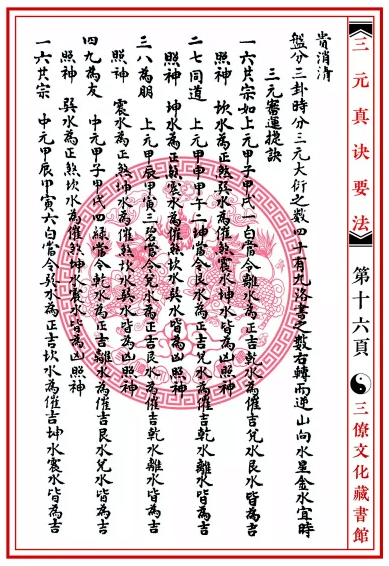 貴消清
盤分三卦時分三元大衍之數四十有九洛書之數右轉而逆山向水星盒水宜時
三元審運捷訣
一六共宗如上元甲子甲戌一白當令離水為正吉乾水為催吉兌水艮水皆為吉
照神 坎水為正煞巽水為催煞震水坤水皆為凶照神
二七同道 上元甲申甲午二坤當令艮水為正吉兌水為催吉乾水離水皆為吉
照神 坤水為正煞震水為催煞坎水巽水皆為凶照神
三八為朋 上元甲辰甲寅三碧當令兌水為正吉艮水為催吉乾水離水皆為吉
照神 震水為正煞坤水為催煞坎水巽水皆為凶照神
四九為友 中元甲子甲戌四綠當令乾水為正吉離水為催吉艮水兌水皆為吉
照神 巽水為正煞坎水為催煞坤水震水皆為凶照神
一六共宗 中元甲辰甲寅六白當令巽水為正吉坎水為催吉坤水震水皆為吉
三元真诀要法
第十六頁
三僚文化藏書館